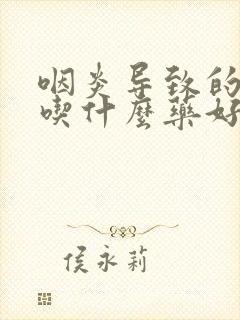 咽炎导致的
喫什麼藥好
侯永莉